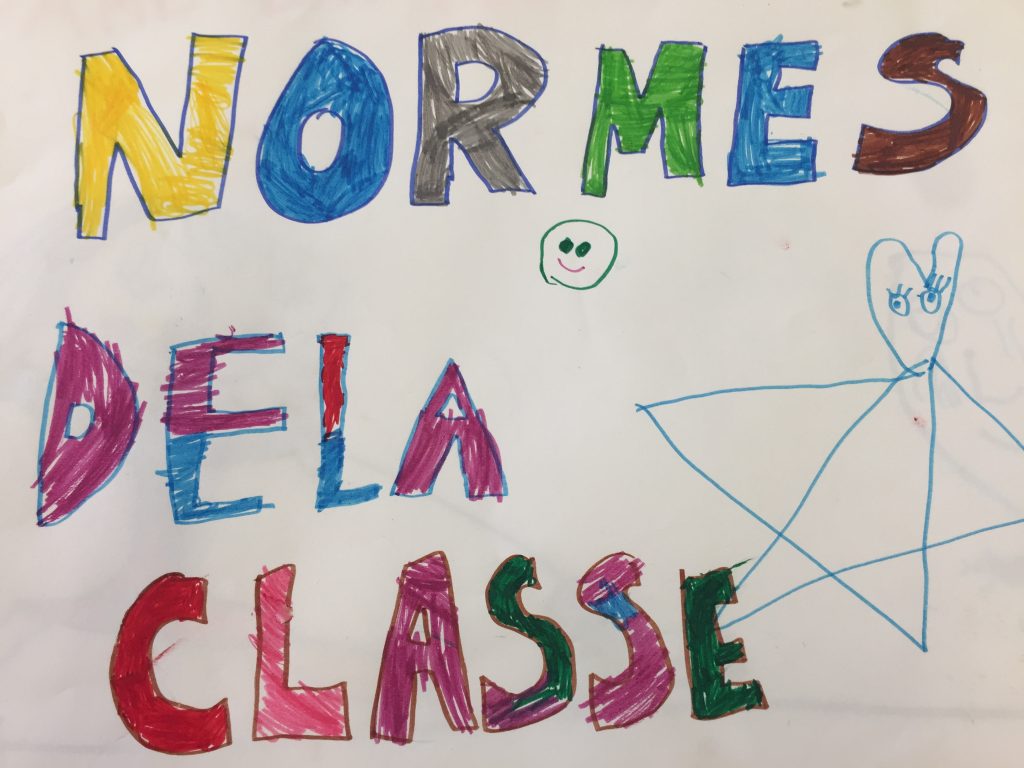 NORMES
DE LA
CLASSE